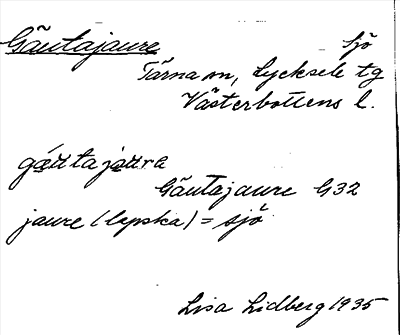 Gäutajaure Sjö
Tärna sn, Lycksele tg
Västerbottens l.
gáutajaura
Gäutajaure G32
jaure (lapska) = sjö
Lisa Lidberg 1935